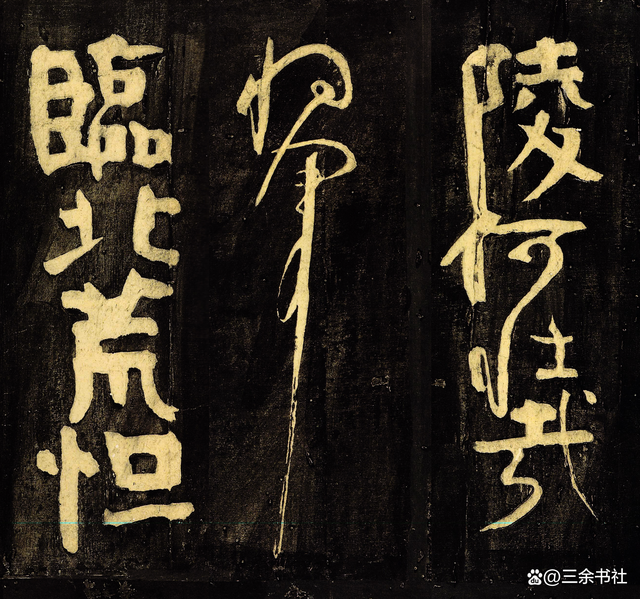 陵何壯哉
將軍
臨北荒怛
@三余书社